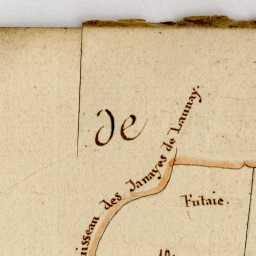 de
isseau des Janayes de Launay.
Futaie.